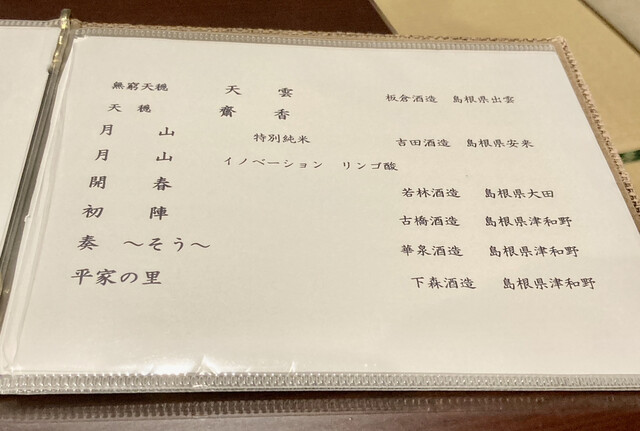 無窮天穏 天雲 板倉酒造 島根県出雲
天穏 齋香
月山 特別純米 吉田酒造 島根県安来
月山 イノベーション リンゴ酸
開春 若林酒造 島根県大田
初陣 古橋酒造 島根県津和野
奏 〜そう〜 華泉酒造 島根県津和野
平家の里 下森酒造 島根県津和野